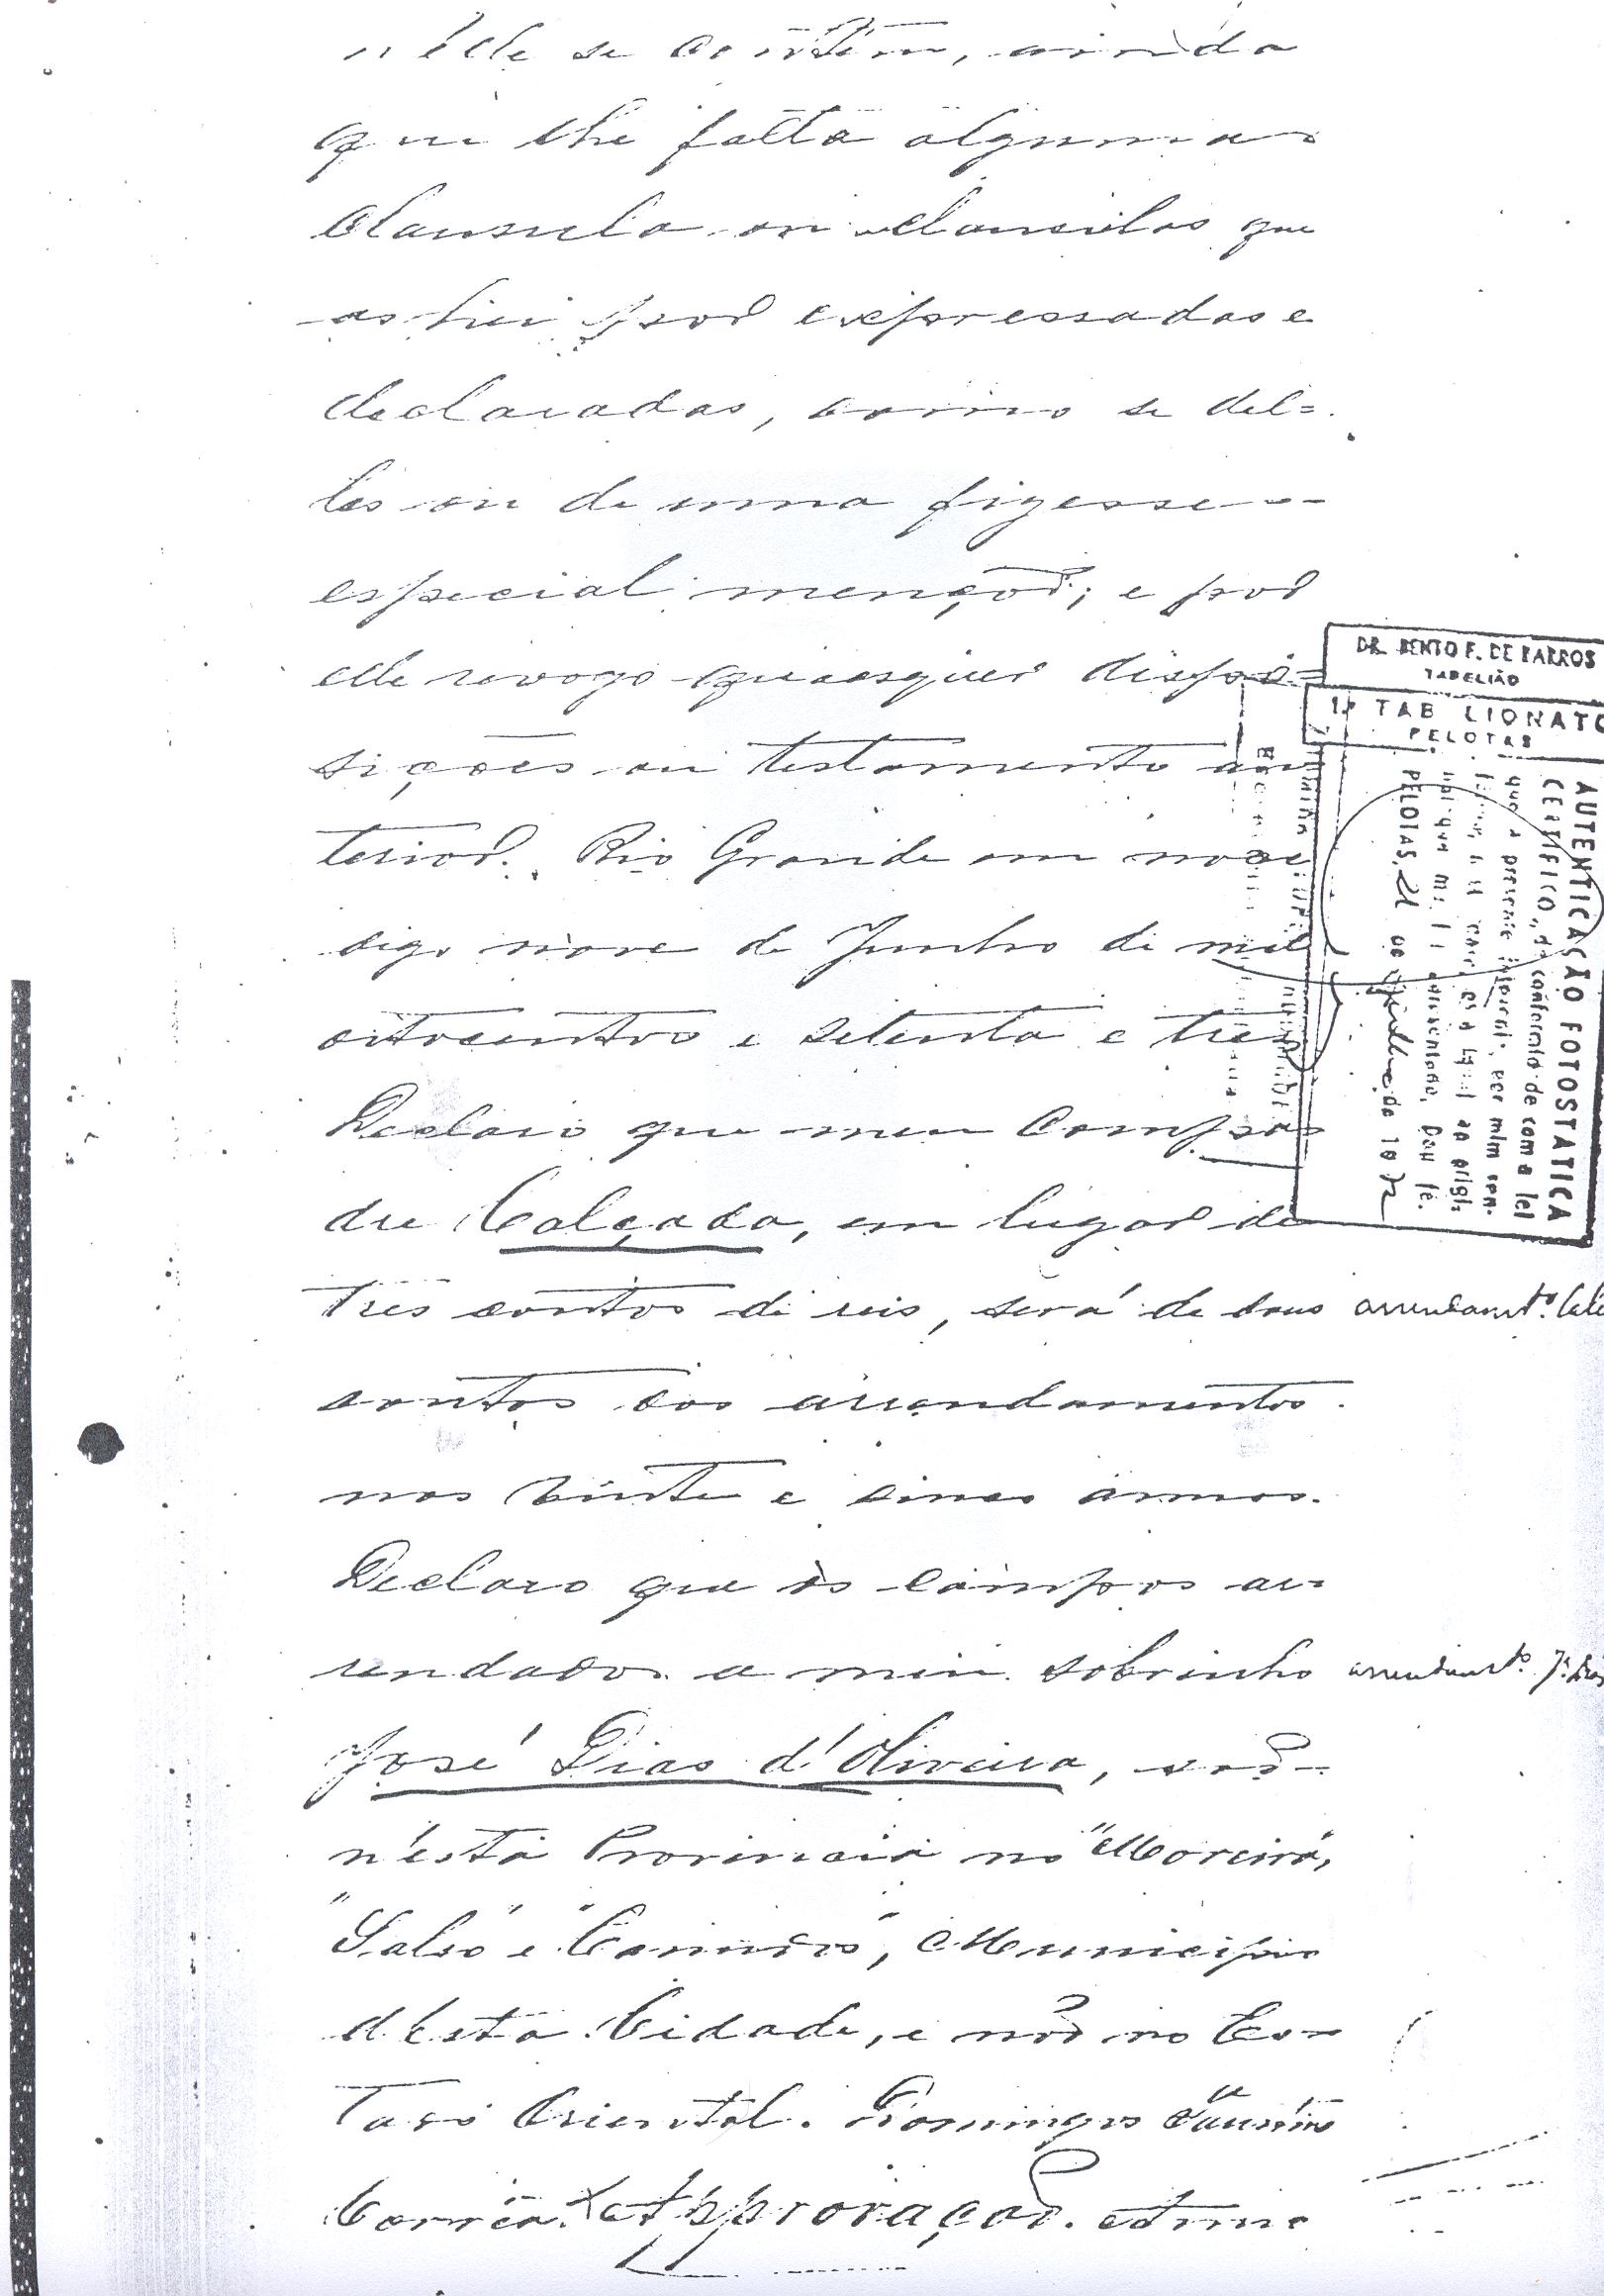 n'elle se contem, ainda
que lhe falta alguma
clausula ou clausulas que
as hei por expressadas e
declaradas, como se del=
las ou de uma fizesse
especial menção; e por
elle revogo quaesquer dispo=
sições ou testamento an=
terior. Rio Grande em nove
digo nove de Junho de mil
oitocentos e setenta e tres
Declaro que meu Compa=
dre Calçada, em lugar de
tres contos de reis, será de dous
arrendamto.
contos os arrendamentos
nos vinte e cinco annos.
Declaro que os campos ar=
rendados a meu sobrinho
arrendamto. Je. Dias
José Dias d'Oliveira, são
n'esta Provincia no "Moreira,
"Salso" e "Canudo", Municipio
d'esta Cidade, e não no Es=
tado Oriental. Domingos Faustino
Corrêa. Approvação. Anno
DR. BENTO F. DE BARROS
TABELIÃO
1.º TAB LIONATO
PELOTAS
AUTENTICAÇÃO FOTOSTATICA
CERTIFICO, de conformid de com a lei
que a presente fotocopia, por mim con-
é igual ao origi-
nal que me foi apresentado, Dou fé.
PELOTAS, 21 de de 1972